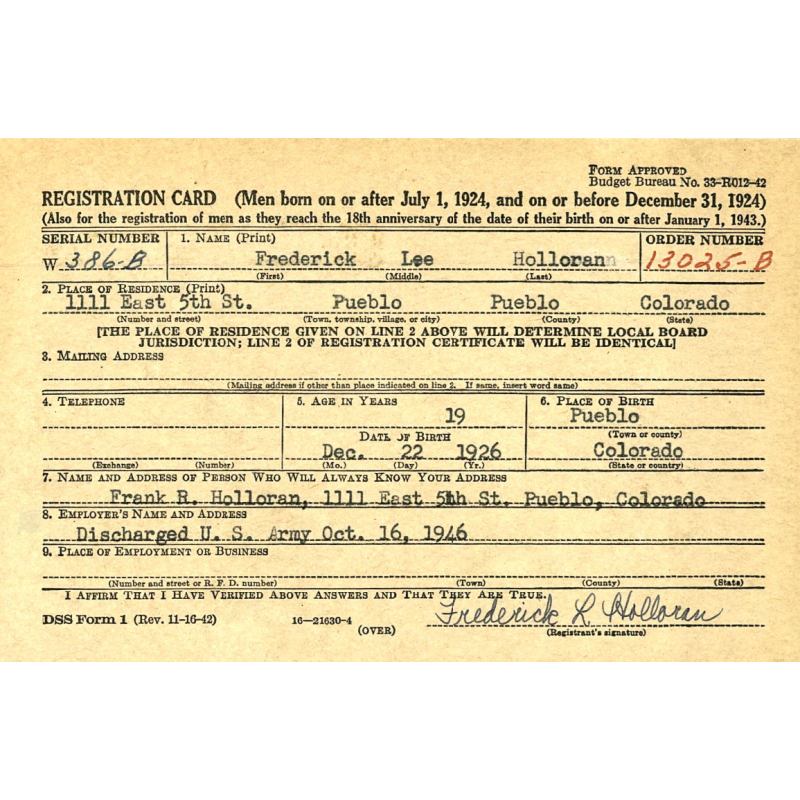 FORM APPROVED
Budget Bureau No. 33-R012-42
REGISTRATION CARD (Men born on or after July 1, 1924, and on or before December 31, 1924)
(Also for the registration of men as they reach the 18th anniversary of the date of their birth on or after January 1, 1943.)
SERIAL NUMBER 1. NAME (Print) ORDER NUMBER
W 386-B Frederick Lee Hollorann 13025-B
(First) (Middle) (Last)
2. PLACE OF RESIDENCE (Print)
1111 East 5th St. Pueblo Pueblo Colorado
(Number and street) (Town, township, village, or city) (County) (State)
[THE PLACE OF RESIDENCE GIVEN ON LINE 2 ABOVE WILL DETERMINE LOCAL BOARD
JURISDICTION; LINE 2 OF REGISTRATION CERTIFICATE WILL BE IDENTICAL]
3. MAILING ADDRESS
(Mailing address if other than place indicated on line 2. If same, insert word same)
4. TELEPHONE 5. AGE IN YEARS 6. PLACE OF BIRTH
19 Pueblo
DATE OF BIRTH (Town or county)
Dec. 22 1926 Colorado
(Exchange) (Number) (Mo.) (Day) (Yr.) (State or country)
7. NAME AND ADDRESS OF PERSON WHO WILL ALWAYS KNOW YOUR ADDRESS
Frank R. Holloran, 1111 East 5th St. Pueblo, Colorado
8. EMPLOYER'S NAME AND ADDRESS
Discharged U. S. Army Oct. 16, 1946
9. PLACE OF EMPLOYMENT OR BUSINESS
(Number and street or R. F. D. number) (Town) (County) (State)
I AFFIRM THAT I HAVE VERIFIED ABOVE ANSWERS AND THAT THEY ARE TRUE.
Frederick L Holloran
DSS Form 1 (Rev. 11-16-42) 16—21630-4
(OVER) (Registrant's signature)